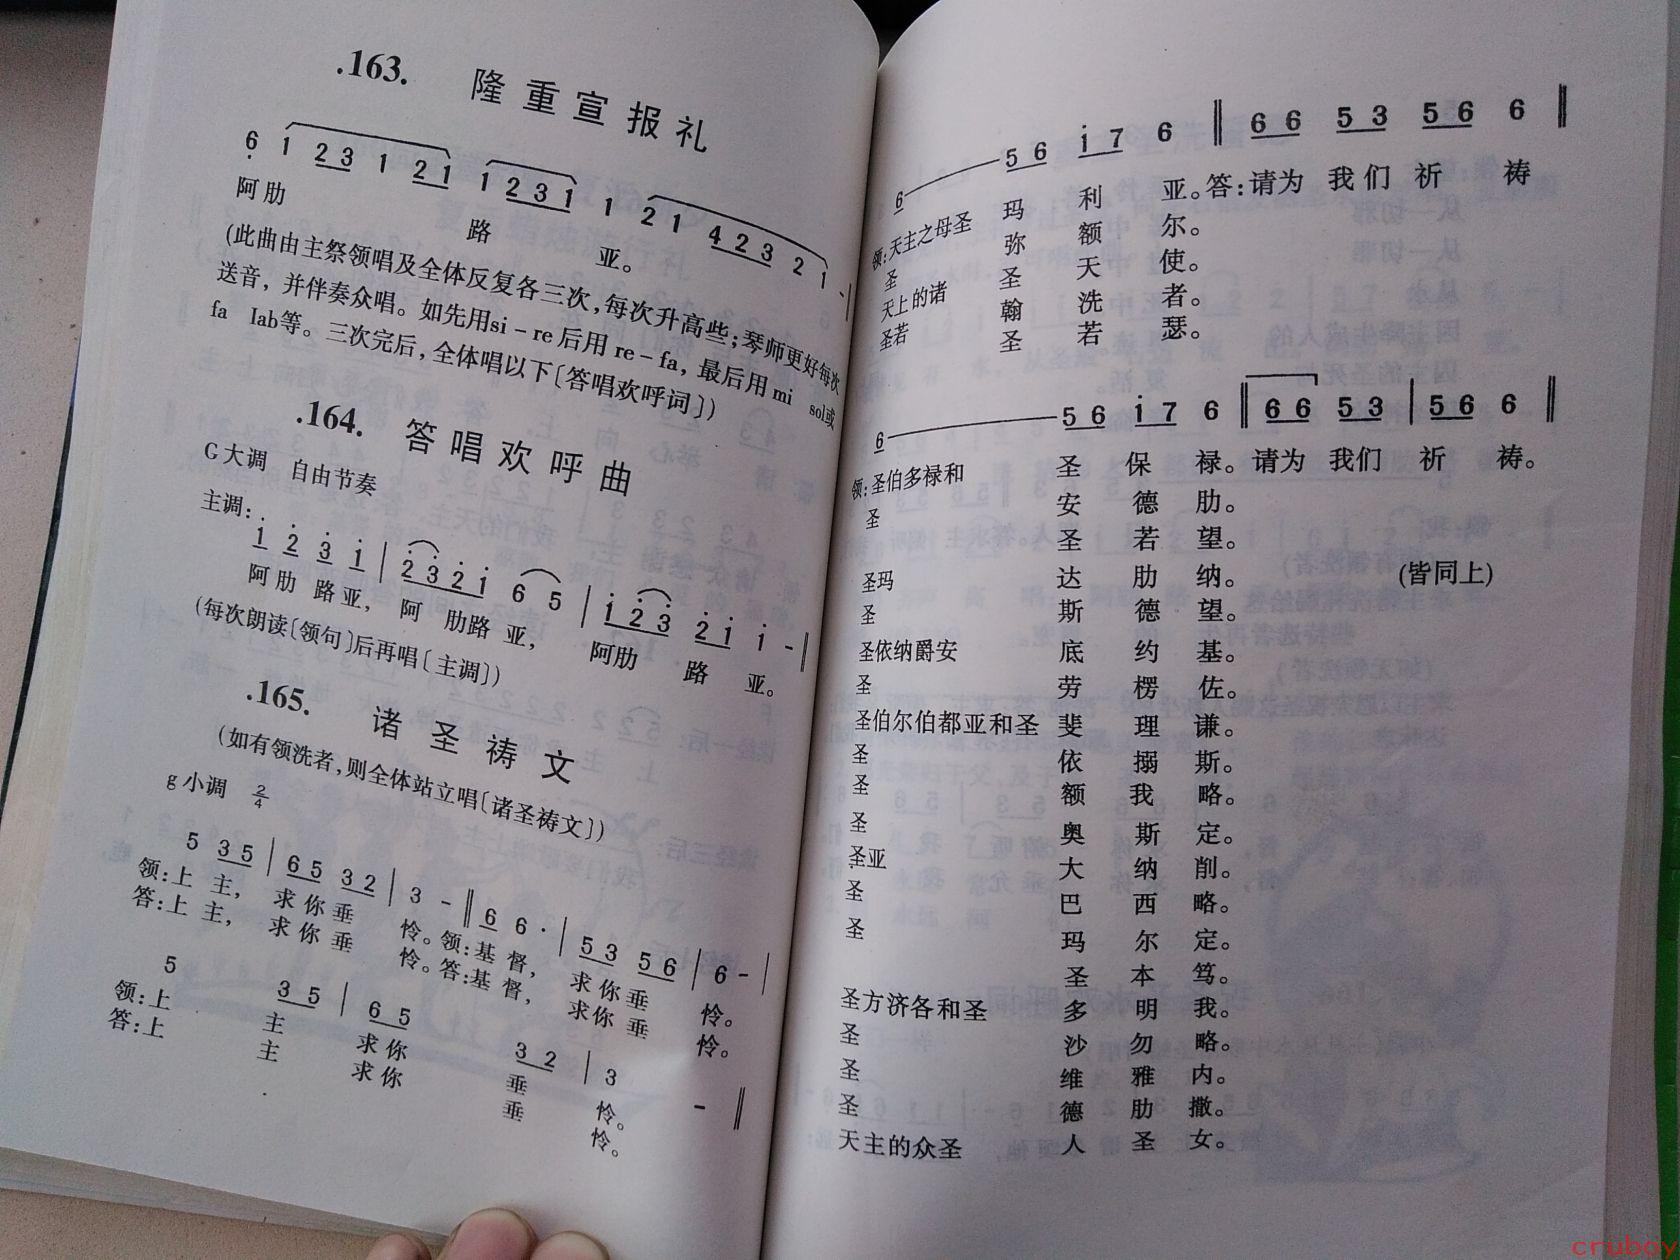 .163. 隆重宣报礼
6 1 2 3 1 2 1 1 2 3 1 1 2 1 4 2 3 2 1 -
阿肋 路 亚。
(此曲由主祭领唱及全体反复各三次,每次升高些;琴师更好每次
送音,并伴奏众唱。如先用si-re后用re-fa,最后用mi sol或
fa lab等。三次完后,全体唱以下〔答唱欢呼词〕)
.164. 答唱欢呼曲
G大调 自由节奏
主调:
1 2 3 1 | 2 3 2 1 6 5 | 1 2 3 2 1 1 -
阿肋路亚, 阿肋路亚, 阿肋 路 亚。
(每次朗读〔领句〕后再唱〔主调〕)
.165. 诸圣祷文
(如有领洗者,则全体站立唱〔诸圣祷文〕)
g小调 2/4
5 3 5 | 6 5 3 2 | 3 - ‖ 6 6 · | 5 3 5 6 | 6 - |
领:上主, 求你垂 怜。领:基督, 求你垂 怜。
答:上主, 求你垂 怜。答:基督, 求你垂 怜。
5 3 5 | 6 5 3 2 | 3 - ‖
领:上 主 求你 垂 怜。
答:上 主 求你 垂 怜。
6 5 6 1 7 6 ‖ 6 6 5 3 5 6 6 ‖
领:天主之母圣 玛 利 亚。答:请为 我们 祈 祷
圣 弥 额 尔。
天上的诸 圣 天 使。
圣若 翰 洗 者。
圣 若 瑟。
6 5 6 1 7 6 ‖ 6 6 5 3 | 5 6 6 ‖
领:圣伯多禄和 圣 保 禄。请为 我们 祈 祷。
圣 安 德 肋。
圣 若 望。
圣玛 达 肋 纳。 (皆同上)
圣 斯 德 望。
圣依纳爵安 底 约 基。
圣 劳 楞 佐。
圣伯尔伯都亚和圣 斐 理 谦。
圣 依 搦 斯。
圣 额 我 略。
圣 奥 斯 定。
圣亚 大 纳 削。
圣 巴 西 略。
圣 玛 尔 定。
圣 本 笃。
圣方济各和圣 多 明 我。
圣 沙 勿 略。
圣 维 雅 内。
圣 德 肋 撒。
天主的众圣 人 圣 女。
cruboy